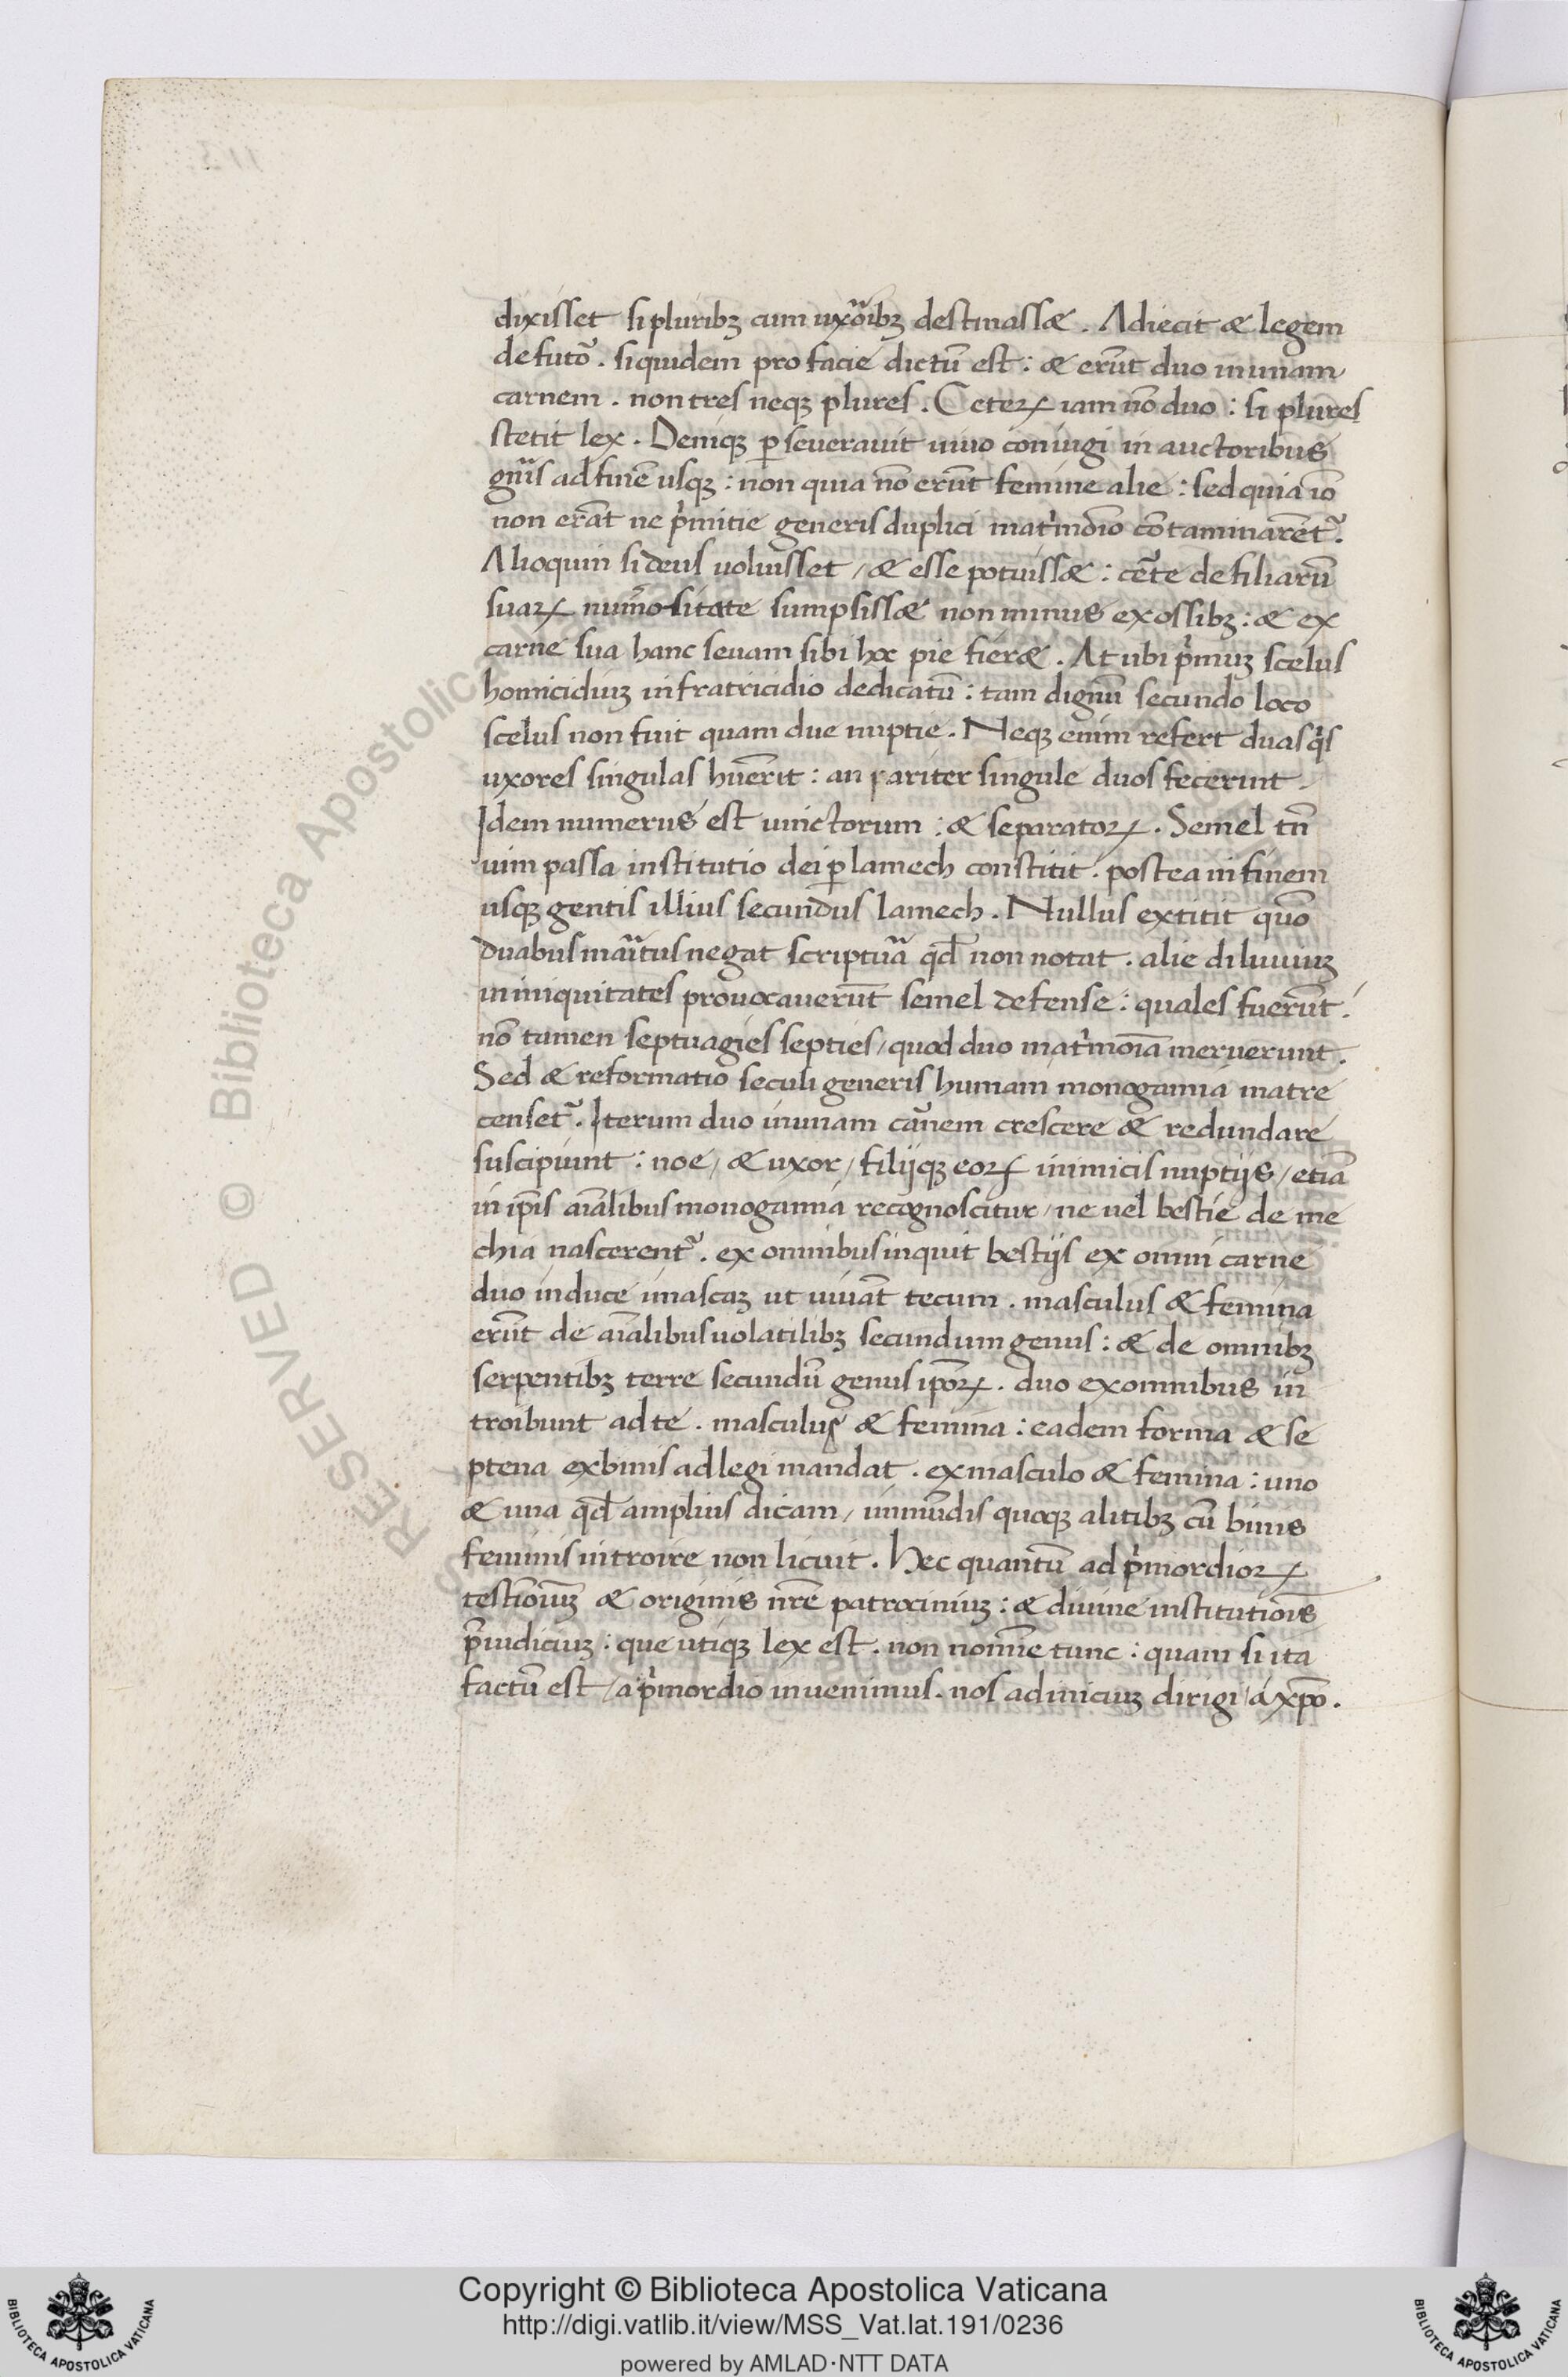 dixisset si pluribꝫ cum uxo᷑ibꝫ destinass&. Adiecit & legem
de futo᷑. siquidem pro facie dictū est: & erūt duo in unam
carnem. non tres neqꝫ plures. Ceteꝝ iam nō duo: si plures
stetit lex. Deniqꝫ ꝑseuerauit uiuo coniugi in auctoribus
gn̄is ad finē usqꝫ: non quia nō erūt femine alie: sed quia iō
non erāt ne p̓mitie generis duplici mat̓mōio cōtaminarēt᷑.
Alioquin si deus uoluisset / & esse potuiss&: cēte de filiarū
suaꝝ num̄ositate sumpsiss& non minus ex ossibꝫ: & ex
carne sua hanc seuam sibi hoc pie fier&. At ubi p̓muꝫ scelus
homicidiuꝫ in fratricidio dedicatū: tam dignū secundo loco
scelus non fuit quam due nuptie. Neqꝫ enim refert duas q̓s
uxores singulas hūerit: an pariter singule duos fecerint.
Idem numerus est uinctorum: & separatoꝝ. Semel tn̄
uim passa institutio dei ꝑ lamech constitit. postea in finem
usqꝫ gentis illius secundus lamech. Nullus extitit quō
duabus mar̄itus negat scriptūa qd̄ non notat. alie diluuiuꝫ
in iniquitates prouocauerūt semel defense: quales fuerūt.
nō tamen septuagies septies / quod duo mat̓moīa meruerunt.
Sed & reformatio seculi generis humani monogamia matre
censet᷑. Iterum duo in unam cānem crescere & redundare
suscipiunt: noe / & uxor / filijqꝫ eoꝝ inimicis nuptijs / etiā
in ip̄is aīalibus monogamia recognoscitur / ne uel bestie de me
chia nascerent᷑. ex omnibus inquit bestijs ex omni carne
duo induce in ascaꝫ ut uiuāt tecum. masculus & femina
erūt de aīalibus uolatilibꝫ secundum genus: & de omnibꝫ
serpentibꝫ terre secundū genus ip̄oꝝ. duo ex omnibus in
troibunt ad te. masculus & femina: eadem forma & se
ptena ex binis ad legi mandat. ex masculo & femina: uno
& una qd̄ amplius dicam / immūdis quoqꝫ alitibꝫ cū binis
feminis introire non licuit. Hec quantū ad p̓mordioꝝ
testīoniuꝫ & originis nr̄e patrociniuꝫ: & diuine institutiōis
p̄iudiciuꝫ: que utiqꝫ lex est. non nomīe tunc: quam si ita
factū est / a p̓mordio inuenimus. nos ad iniciuꝫ dirigi / a xp̄o.
Copyright © Biblioteca Apostolica Vaticana
http://digi.vatlib.it/view/MSS_Vat.lat.191/0236
powered by AMLAD·NTT DATA
BIBLIOTECA APOSTOLICA VATICANA
BIBLIOTECA APOSTOLICA VATICANA
RESERVED © Biblioteca Apostolica